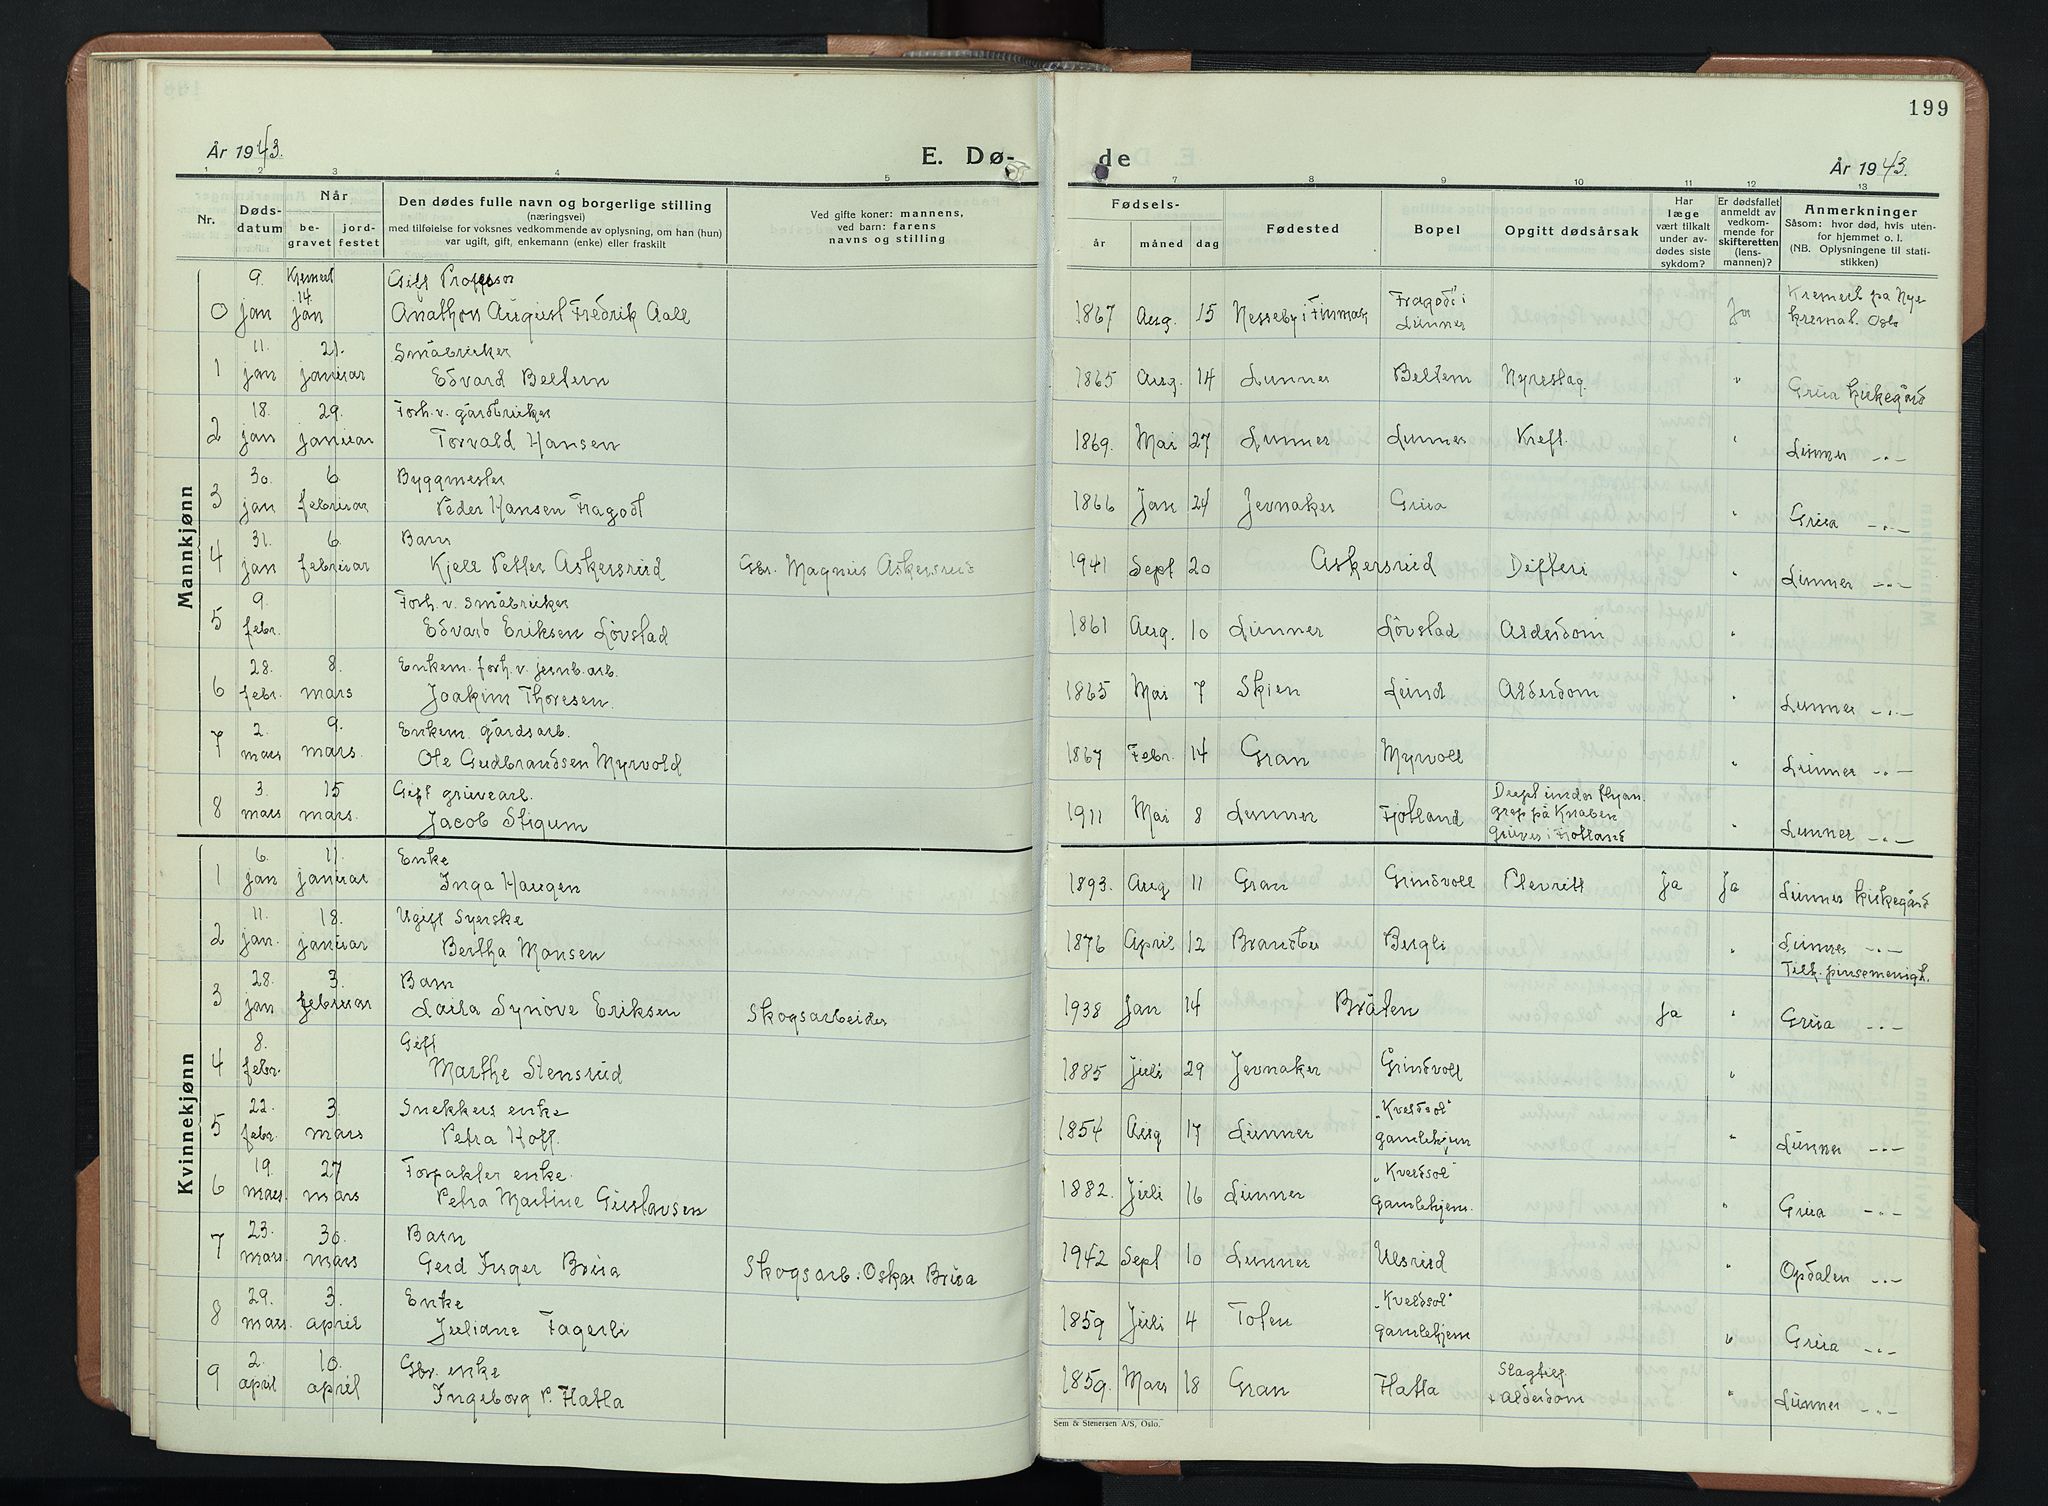 199
År 1943.
E. Dø-
de
År 1943.
1 2 3 4 5 7 8 9 10 11 12 13
Nr.
Døds-
datum
Når
be-
gravet
jord-
festet
Den dødes fulle navn og borgerlige stilling
(næringsvei)
med tilføielse for voksnes vedkommende av oplysning, om han (hun)
var ugift, gift, enkemann (enke) eller fraskilt
Ved gifte koner: mannens,
ved barn: farens
navns og stilling
Fødsels-
år måned dag
Fødested
Bopel
Opgitt dødsårsak
Har
læge
vært tilkalt
under av-
dødes siste
sykdom?
Er dødsfallet
anmeldt av
vedkom-
mende for
skifteretten
(lens-
mannen)?
Anmerkninger
Såsom: hvor død, hvis uten-
for hjemmet o. l.
(NB. Oplysningene til stati-
stikken)
Mannkjønn
9. Kremert Gift Professor
0 jan 14 jan Anathon August Fredrik Aall 1867 Aug. 15 Nesseby i Finmark "Fragodt" i Lunner Ja Kremert på Nye kremat. Oslo
11. 21. Småbruker
1 jan januar Edvard Beltem 1865 Aug. 14 Lunner Beltem Nyreslag. " Grua kirkegård
18. 29. Forh. v. gårdbruker
2 jan januar Torvald Hansen 1869. Mai 27 Lunner Lunner Kreft. " Lunner -"-
30. 6 Byggmester
3 jan februar Peder Hansen Fragodt 1866 Jan 24 Jevnaker Grua " Grua -"-
31. 6. Barn
4 jan februar Kjell Petter Askersrud Gbr. Magnus Askersrud 1941 Sept 20 Askersrud Difteri " Lunner -"-
9. Forh. v. småbruker
5 febr. Edvard Eriksen Lövstad 1861 Aug. 10 Lunner Lövstad Alderdom "
28. 8. Enkem. forh. v. jernb. arb.
6 febr. mars Joakim Thoresen. 1865 Mai 7 Skien Lund Alderdom " Lunner -"-
2. 9. Enkem. gårdsarb.
7 mars mars. Ole Gudbrandsen Myrvold 1867 Febr. 14 Gran Myrvoll " Lunner -"-
3. 15 Gift gruvearb.
8 mars mars. Jacob Stigum 1911 Mai 8 Lunner Fjotland Dræpt under
grep på Knaben
Gruver i Fjotland " Lunner -"-
Kvinnekjønn
6. 11. Enke
1 jan januar Inga Haugen 1893. Aug 11 Gran Grindvoll Plevritt ja Ja Lunner kirkegård
11. 18. Ugift Syerske
2 jan. januar Bertha Monsen 1876 April 12 Brandbu Bergli " Lunner -"-
Tilh. pinsemenigh.
28. 3. Barn
3 jan februar Laila Synöve Eriksen Skogsarbeider 1938 Jan 14 Bråten ja " Grua -"-
8. Gift
4 febr. Marthe Stensrud 1885 Juli 29 Jevnaker Grindvoll "
22. 3. Snekkers enke
5 febr. mars Petra Hoff. 1854 Aug 17 Lunner "Kveldsol" gamlehjem " Lunner -"-
19. 27 Forpakter enke.
6 mars. mars Petra Martine Gustavsen 1882. Juli 16 Lunner "Kveldsol" gamlehjem. " Grua -"-
23. 30. Barn
7 mars. mars Gerd Inger Brua Skogsarb. Oskar Brua 1942 Sept 10 Lunner Ulsrud " Opdalen -"-
29. 3. Enke
8 mars. april Juliane Fagerli 1859 Juli 4 Toten "Kveldsol" gamlehjem " Grua -"-
2. 10. Gbr. enke
9 april april Ingeborg P. Flatla 1859. Mars 18 Gran Flatla Slagtilf. + alderdom " Lunner -"-
Sem & Stenersen A/S, Oslo.